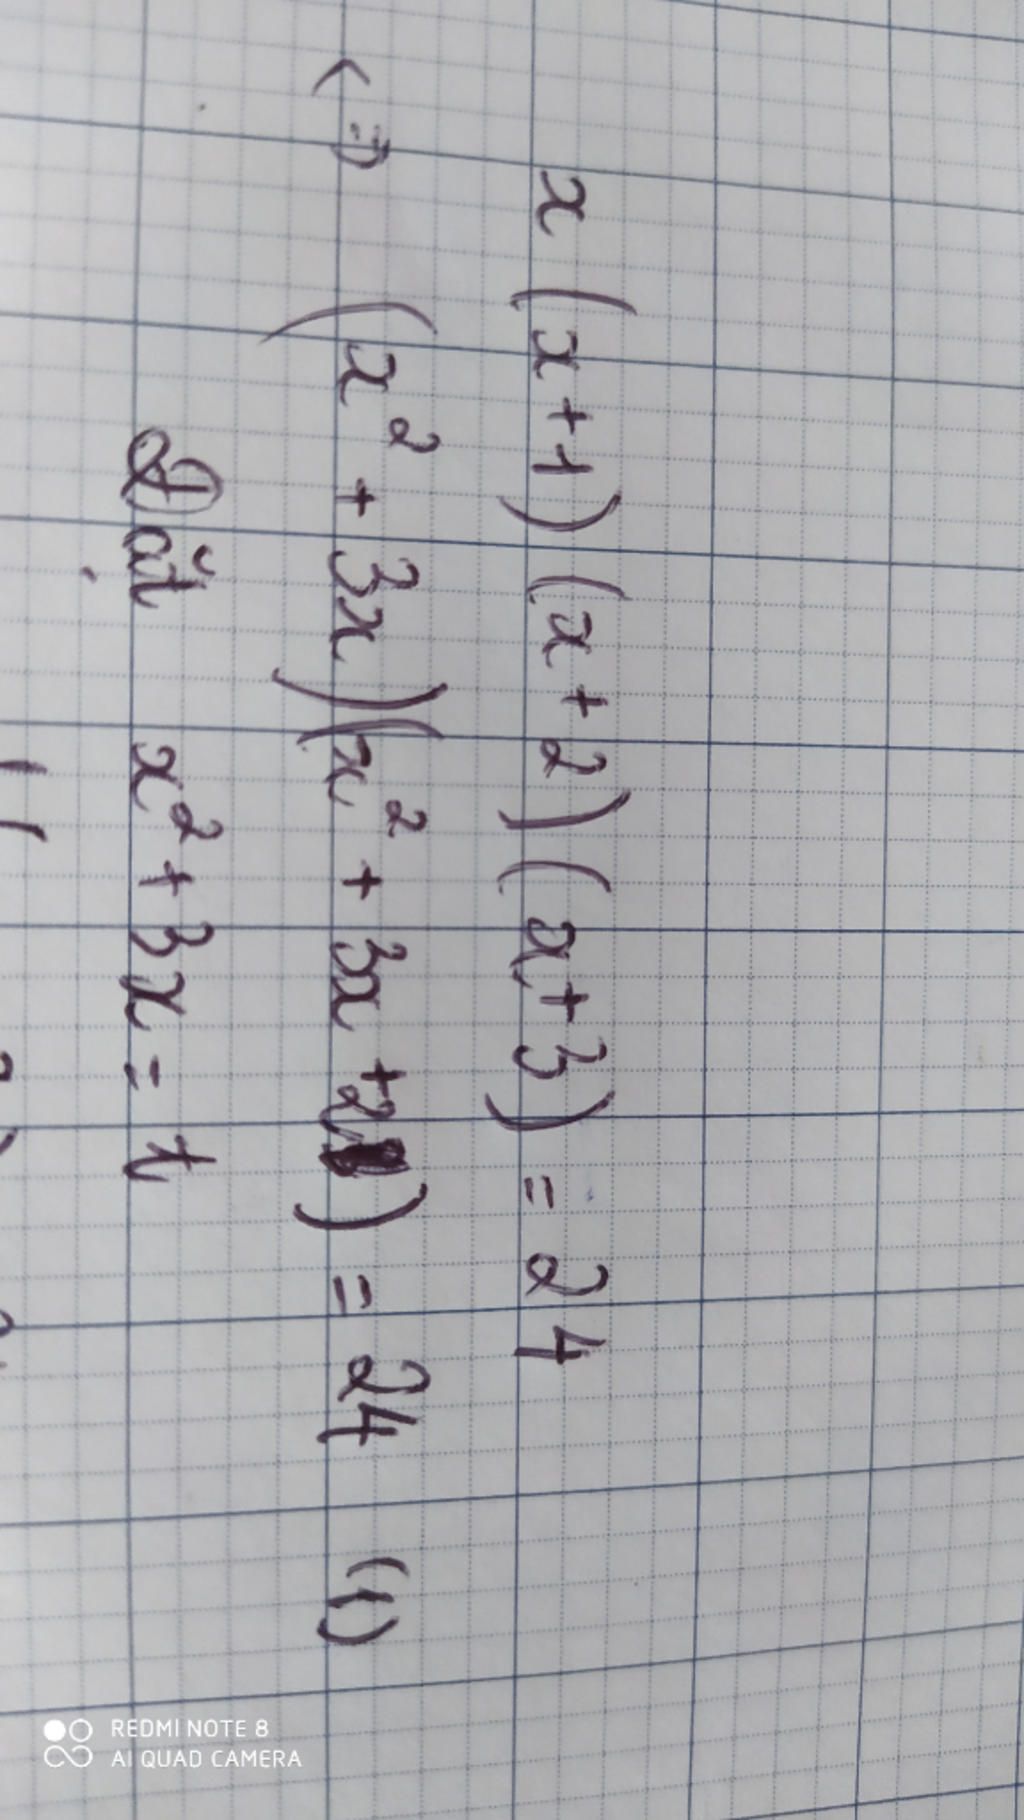 x (x+1) (x+2) (x+3) = 24
<=> (x² + 3x)(x² + 3x +2) = 24 (1)
Đặt x² + 3x = t
REDMI NOTE 8
AI QUAD CAMERA